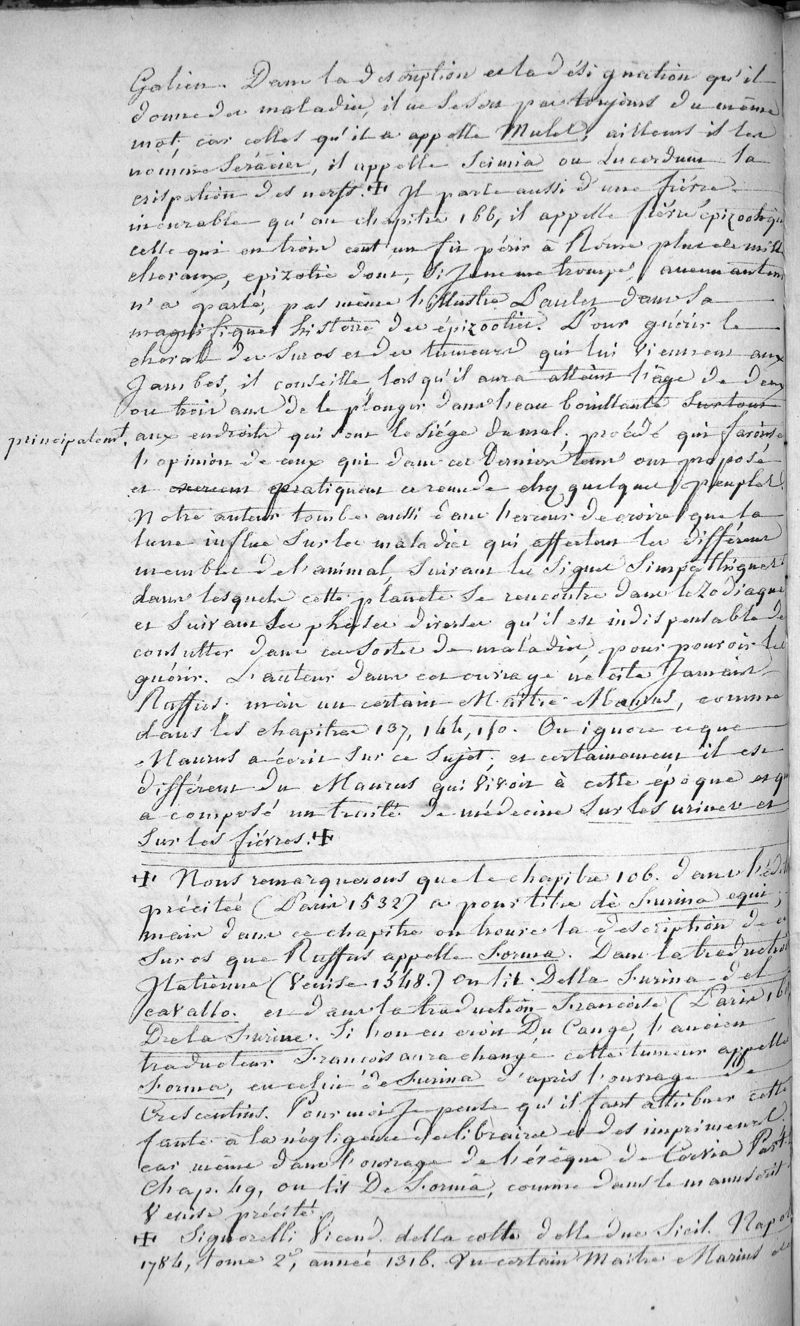 Galien. Dans la description et la désignation qu'il
donne des maladies, il ne se sert pas toujours du même
mot, car celles qu'il a appelle Mules, ailleurs il les
nomme Seracier, il appelle Scimia ou Lucerdum la
crispation des nerfs. ✠ Il parle aussi d'une fièvre
incurable qu'au chapitre 166, il appelle fièvre épizootique
celle qui en trois cent un fit périr à Rome plus de mille
chevaux, epizotie dont, si je ne me trompe, aucun auteur
n'a parlé, pas même l'illustre Paulet dans sa
magnifique histoire des épizooties. Pour guérir le
cheval des suros et des tumeurs qui lui viennent aux
jambes, il conseille lorsqu'il aura atteint l'âge de deux
ou trois ans de le plonger dans l'eau bouillante surtout
principalemt. aux endroits qui sont le siége du mal, procédé qui favorise
l'opinion de ceux qui dans ces derniers tems ont proposé
et pratiquent ce remède chez quelques peuples.
Notre auteur tombe aussi dans l'erreur de croire que la
lune influe sur les maladies qui affectent les différens
membres de l'animal, suivant les signes simpathiques
dans lesquels cette planète se rencontre dans le Zodiaque
et suivant ses phases diverses qu'il est indispensable de
consulter dans ces sortes de maladies, pour pouvoir les
guérir. L'auteur dans cet ouvrage ne cite jamais
Ruffus. mais un certain Maître Maurus, comme
dans les chapitres 137, 144, 150. On ignore ce que
Maurus a écrit sur ce sujet, et certainement il est
différent du Maurus qui vivoit à cette époque et qui
a composé un traité de médecine sur les urines et
sur les fièvres. ✠
✠ Nous remarquerons que le chapitre 106. dans l'édit
précitée (Paris 1532) a pour titre de Surina equi;
mais dans ce chapitre on trouve la description des
suros que Ruffus appelle Forma. Dans la traduction
Italienne (Venise 1548.) on lit Della Surina del
cavallo. et dans la traduction Françoise (Paris
De la Surine. Si l'on en croit Du Cange, l'ancien
traducteur François aura changé cette tumeur appelle
Forma, en celui de Surina d'après l'ouvrage de
Crescentius. Pour moi je pense qu'il faut attribuer cette
faute à la négligence des libraires et des imprimeurs
car même dans l'ouvrage de l'évêque de Cervia Part.
Chap. 49, on lit De Forma, comme dans le manuscrit
Venise précité.
✠ Signorelli Vicend. della colt. delle due Sicil. Napol
1784, tome 2d, année 1316. Un certain Maitre Marius